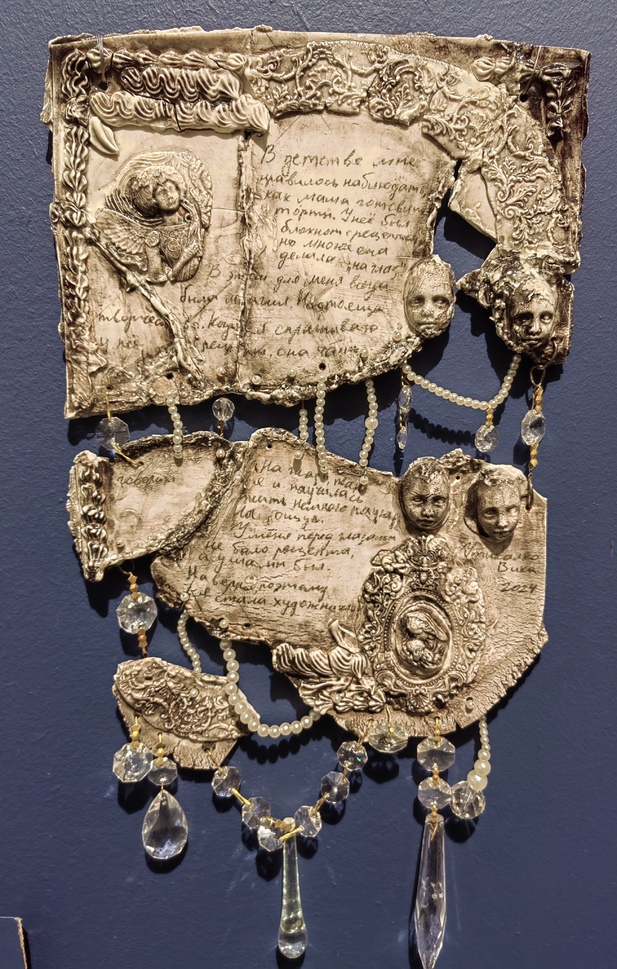 В детстве мне
нравилось наблюдать
как мама готовит
торты. У неё был
блокнот с рецептами
но многое она
делала "на глаз"
В этом для меня всегда
была магия. Настоящее
творчество. Когда я спрашивала
у неё рецепты, она часто
говорила
"На глаз", так
я и научилась
жить немного наугад
на ощупь.
У меня перед глазами
не было рецепта,
был.
Наверно, поэтому
я стала художником
Вика
2024